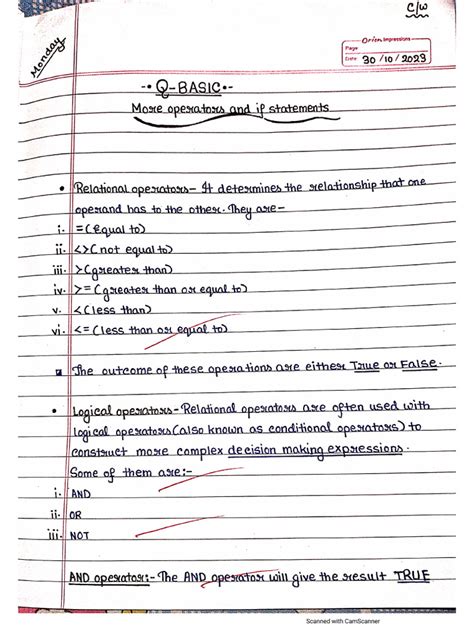 C/W
Monday
Orien Impressions
Page
Date 30/10/2023
Q-BASIC
More operators and if statements
• Relational operators- It determines the relationship that one
operand has to the other. They are-
i. =(Equal to)
ii. <>(not equal to)
iii. >(greater than)
iv. >=(greater than or equal to)
v. <(less than)
vi. <=(less than or equal to)
The outcome of these operations are either True or False.
• Logical operators- Relational operators are often used with
logical operators(also known as conditional operators) to
construct more complex decision making expressions.
Some of them are:-
i. AND
ii. OR
iii. NOT
AND operator:- The AND operator will give the result TRUE
Scanned with CamScanner